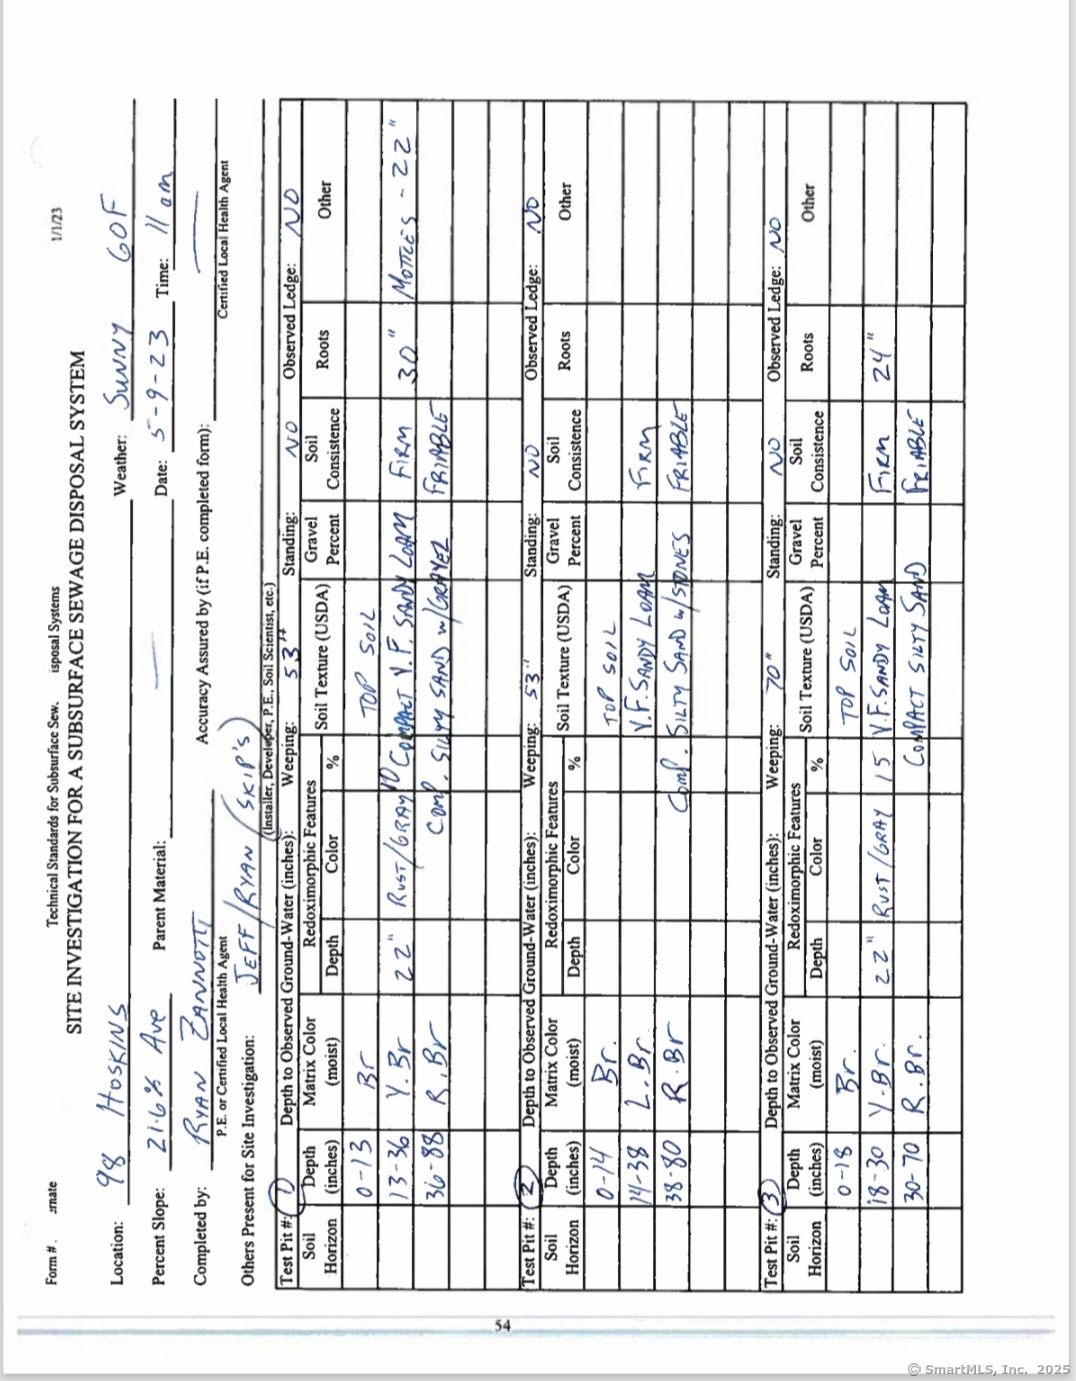 Form #. ɹmate Technical Standards for Subsurface Sew. isposal Systems 1/1/23
SITE INVESTIGATION FOR A SUBSURFACE SEWAGE DISPOSAL SYSTEM
Location: 98 HOSKINS Weather: SUNNY 60F
Percent Slope: 21.6% Ave Parent Material: — Date: 5-9-23 Time: 11 am
Completed by: RYAN ZANNOTTI Accuracy Assured by (if P.E. completed form): —
P.E. or Certified Local Health Agent Certified Local Health Agent
Others Present for Site Investigation: JEFF/RYAN (SKIP'S)
(Installer, Developer, P.E., Soil Scientist, etc.)
Test Pit #: 1 Depth to Observed Ground-Water (inches): Weeping: 53" Standing: NO Observed Ledge: NO
Soil Horizon Depth (inches) Matrix Color (moist) Redoximorphic Features Depth Color % Soil Texture (USDA) Gravel Percent Soil Consistence Roots Other
0-13 Br TOP SOIL
13-36 Y. Br 22" RUST/GRAY 10 COMPACT V.F. SANDY LOAM FIRM 30" MOTTLES - 22"
36-88 R. Br COMP. SILTY SAND w/GRAVEL FRIABLE
Test Pit #: 2 Depth to Observed Ground-Water (inches): Weeping: 53" Standing: NO Observed Ledge: NO
Soil Horizon Depth (inches) Matrix Color (moist) Redoximorphic Features Depth Color % Soil Texture (USDA) Gravel Percent Soil Consistence Roots Other
0-14 Br. TOP SOIL
14-38 L. Br. V.F. SANDY LOAM FIRM
38-80 R. Br COMP. SILTY SAND w/STONES FRIABLE
Test Pit #: 3 Depth to Observed Ground-Water (inches): Weeping: 70" Standing: NO Observed Ledge: NO
Soil Horizon Depth (inches) Matrix Color (moist) Redoximorphic Features Depth Color % Soil Texture (USDA) Gravel Percent Soil Consistence Roots Other
0-18 Br. TOP SOIL
18-30 Y. Br. 22" RUST/GRAY 15 V.F. SANDY LOAM FIRM 24"
30-70 R. Br. COMPACT SILTY SAND FRIABLE
54
© SmartMLS, Inc. 2025